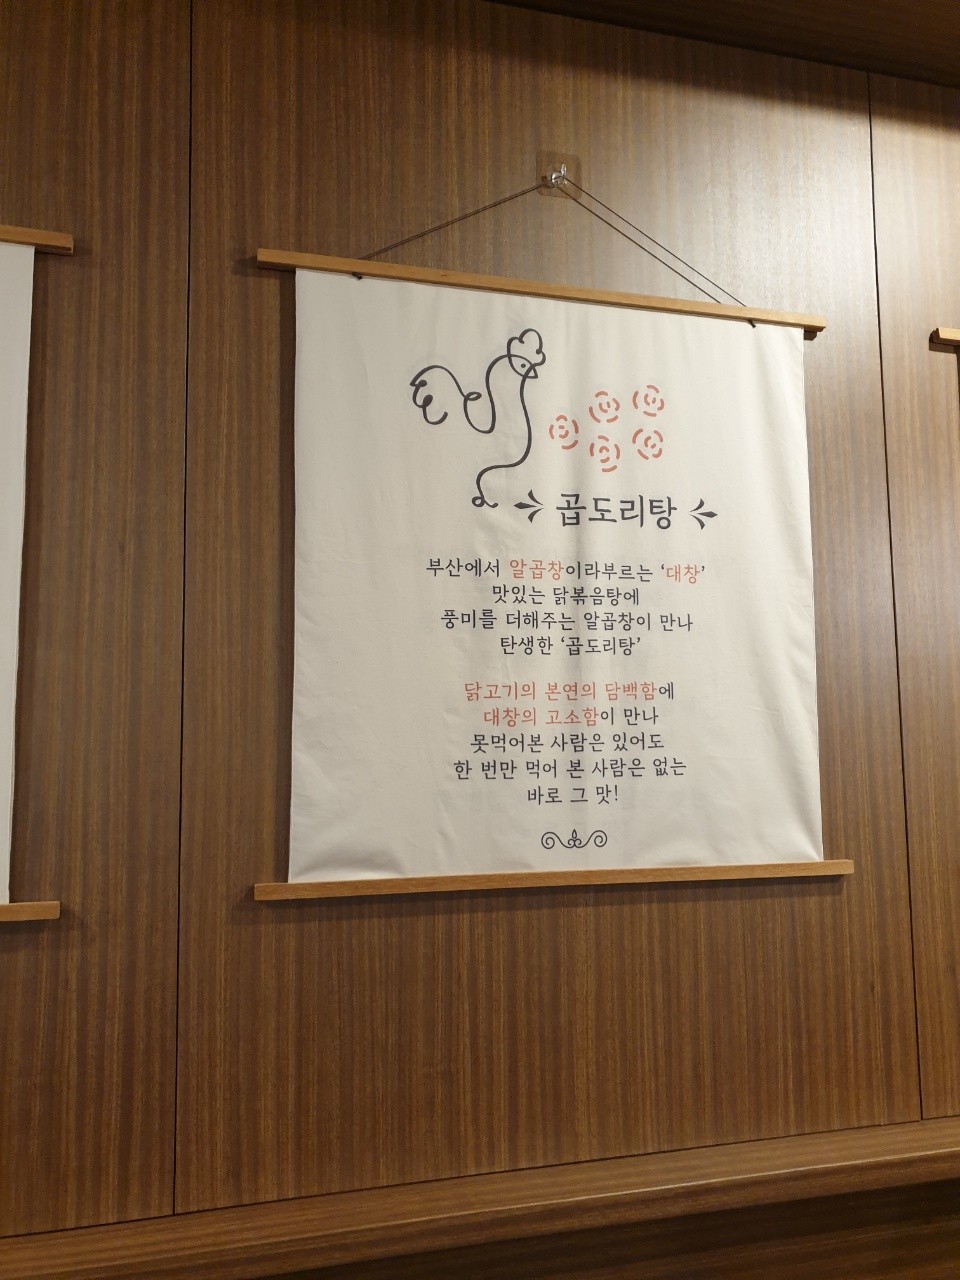 곱도리탕
부산에서 알곱창이라부르는 ‘대창’
맛있는 닭볶음탕에
풍미를 더해주는 알곱창이 만나
탄생한 ‘곱도리탕’
닭고기의 본연의 담백함에
대창의 고소함이 만나
못먹어본 사람은 있어도
한 번만 먹어 본 사람은 없는
바로 그 맛!